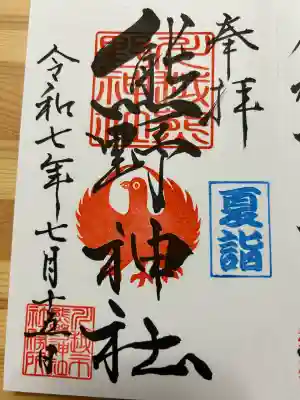 奉拝
夏詣
熊野神社
令和七年七月十五日